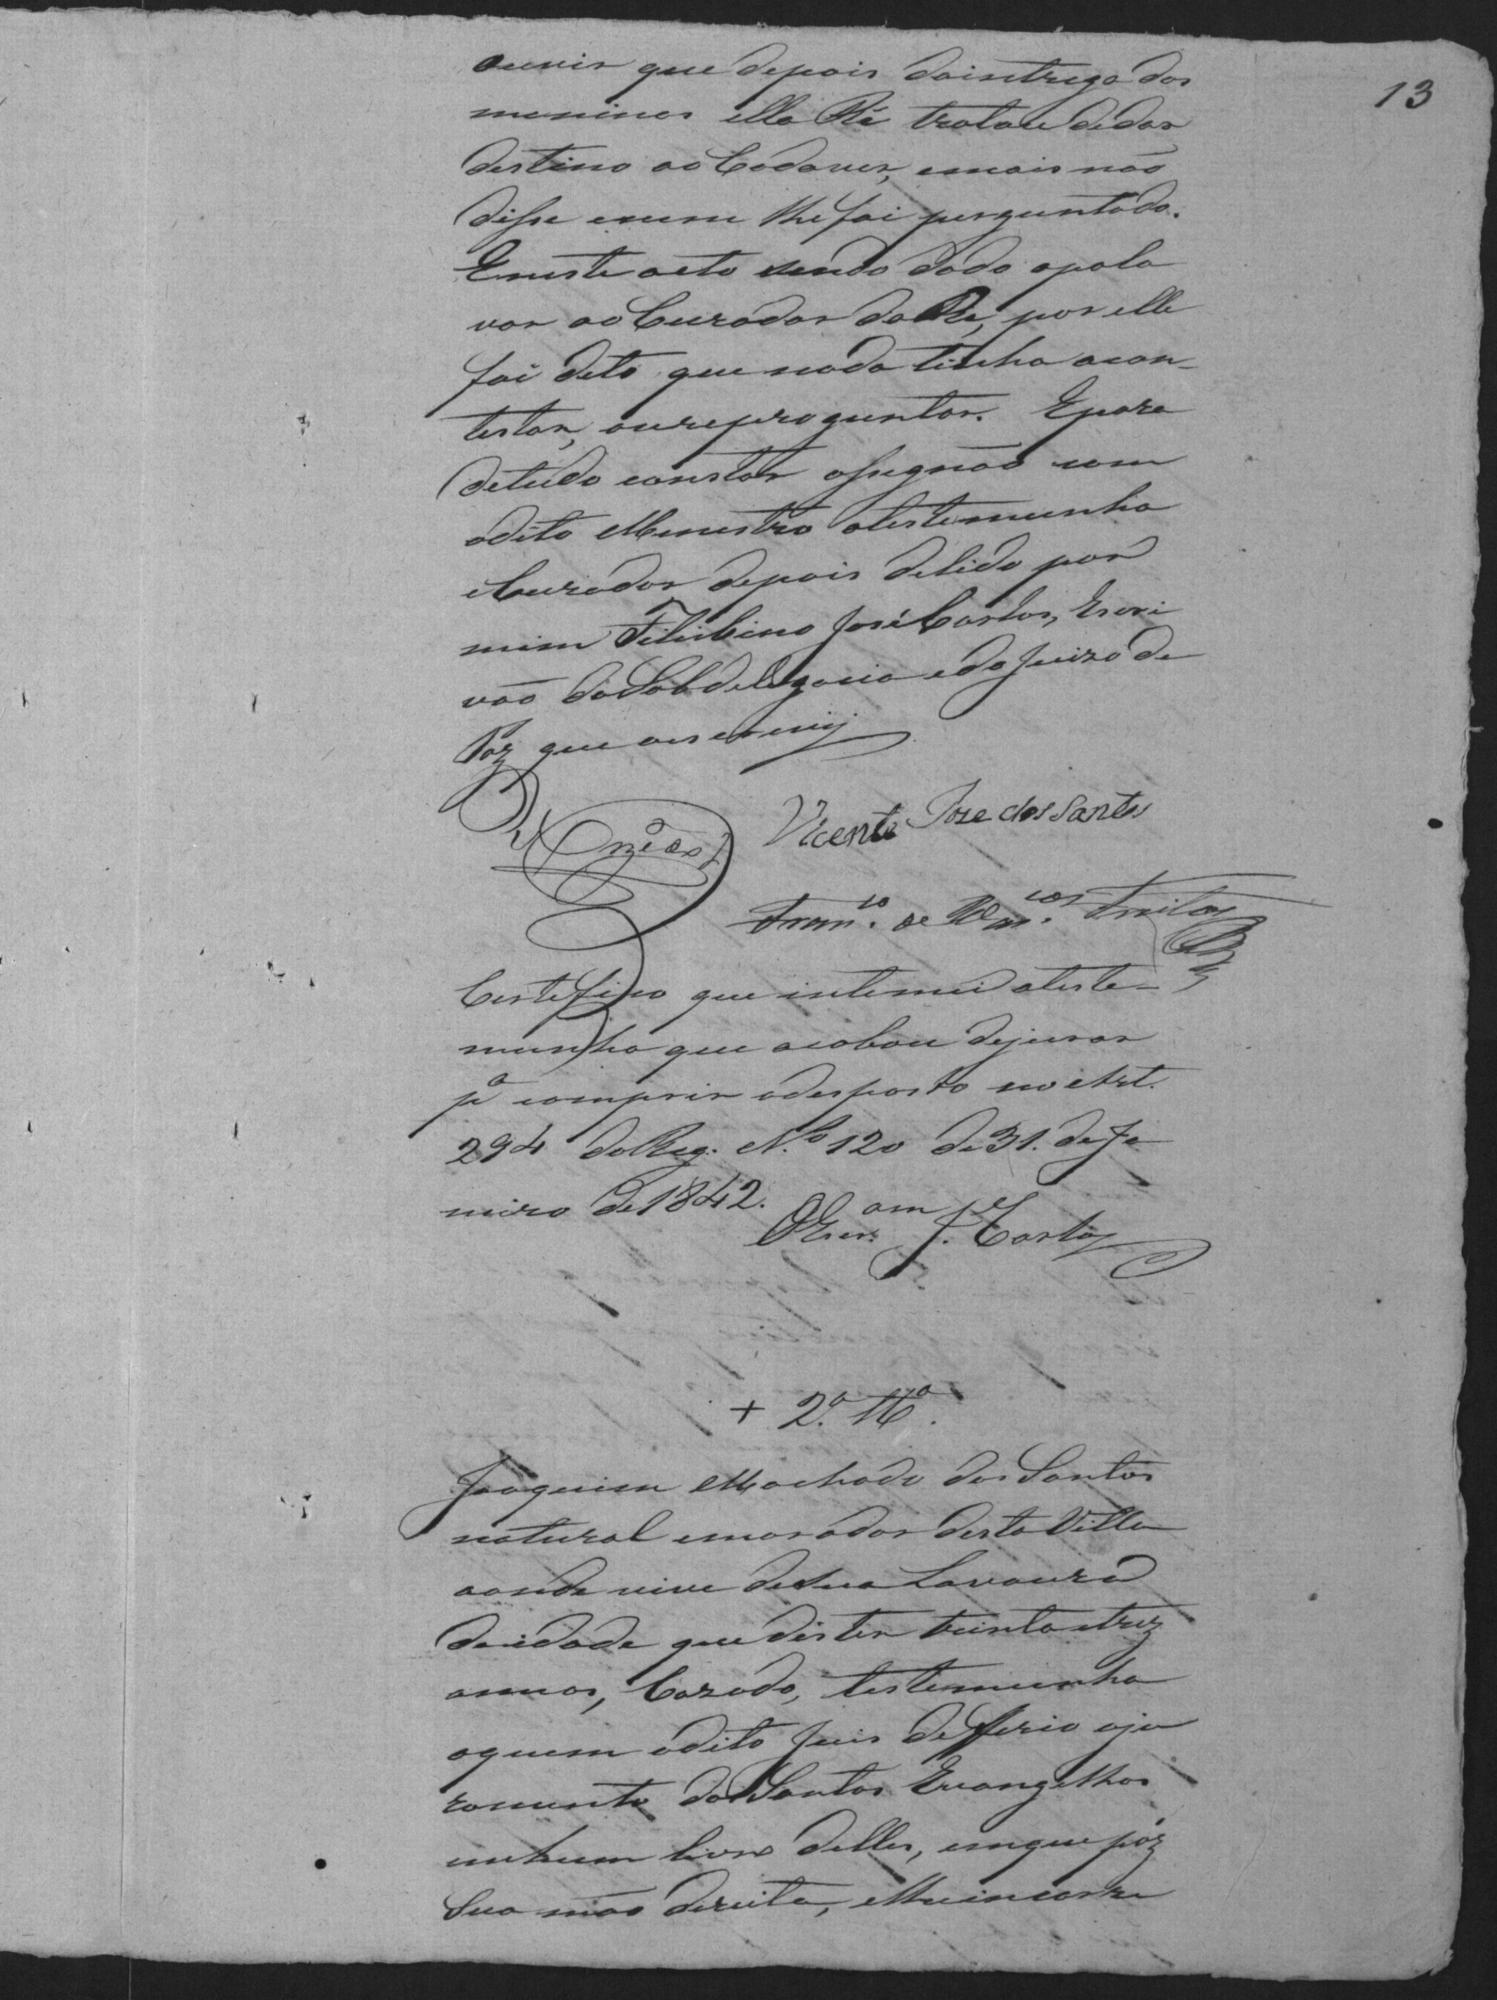 13
ouvir que depois daintrega dos
meninos ella Ré tratou dedar
destino ao Cadaver, emais não
disse enem lhe foi perguntado.
Eneste acto sendo dado apala
vra ao Curador da Ré, por elle
foi dito que nada tinha acon-
testar, ou reproguntar. Epara
detudo constar assignão com
odito Menistro atestemunha
eCurador depois delido por
mim José Carlos, Escri
vão daSubdelegacia edo Juizo de
Paz que oescrevij
Vicente Jose dos Santos
Fran.co de Vas.cos Freitas
Certefico que intemei ateste-
munha que acabou dejurar
p.a comprir odesposto no Art.
294 do Reg. N.o 120 de 31. de Ja
neiro de 1842.
OEscr.am J. Carlos
+ 2.a Tt.a
Joaquim Machado dos Santos
natural emorador desta Villa
aonde vive desua Lavoura
deidade que dis ter trinta etrez
annos, Cazado, testemunha
aquem odito Juis defferio oju
ramento dos Santos Evangelhos
em hum livro delles, emque póz
Sua mão direita, elhe incarre